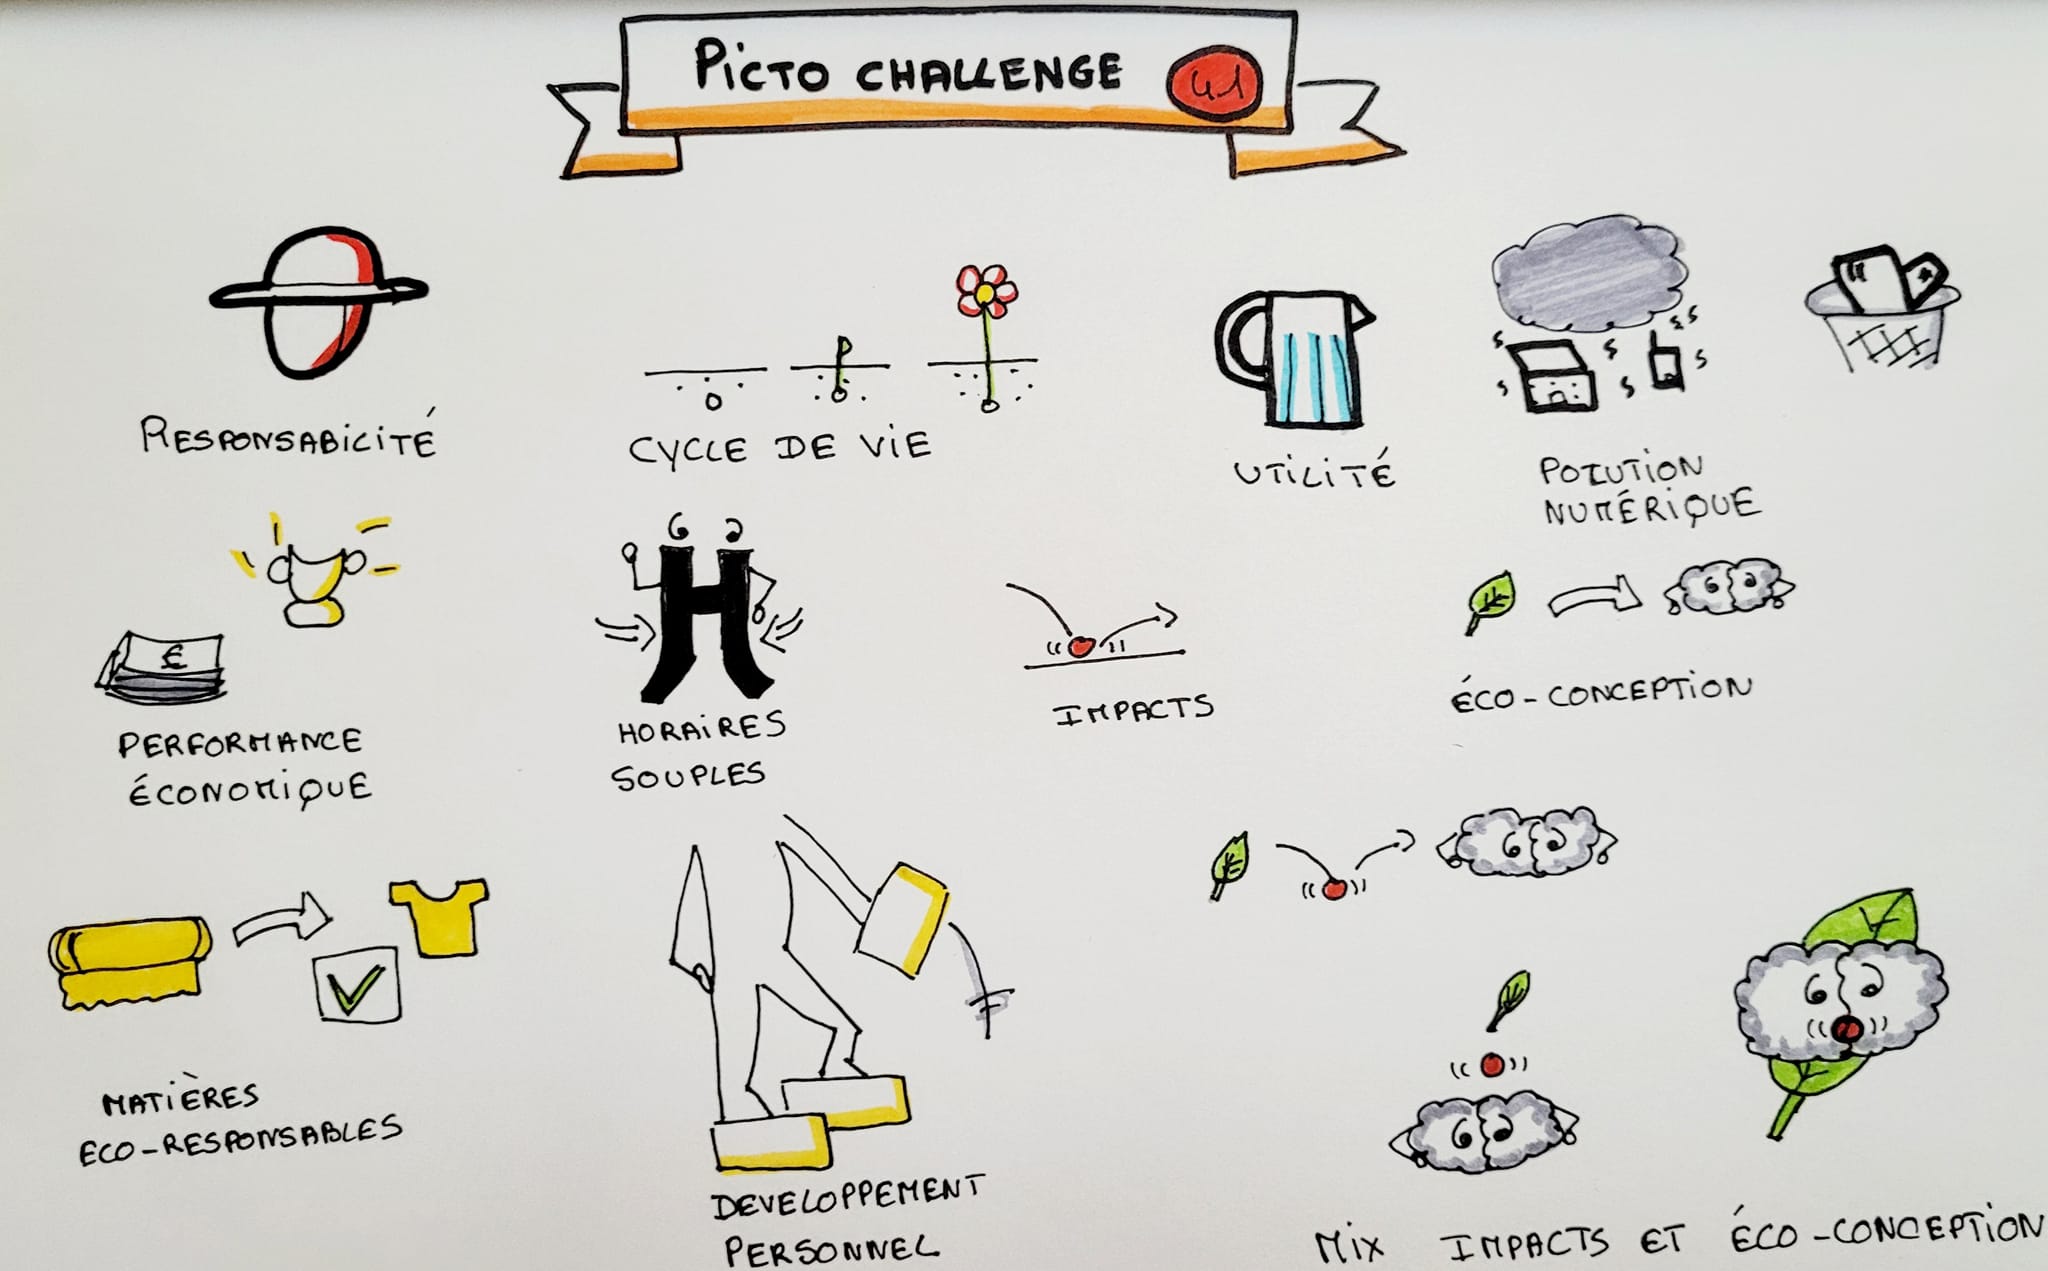 PiCTO CHALLENGE 41
RESPONSABiLiTÉ
CYCLE DE ViE
UTiLiTÉ
POLUTiON
NUMÉRiQUE
€
PERFORMANCE
ÉCONOMiQUE
H
HORAiRES
SOUPLES
IMPACTS
ÉCO-CONCEPTiON
MATiÈRES
ECO-RESPONSABLES
DEVELOPPEMENT
PERSONNEL
MiX IMPACTS ET ÉCO-CONCEPTiON